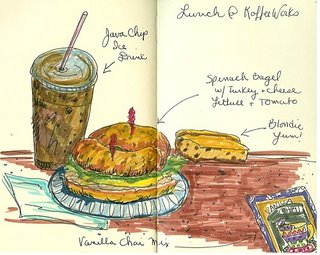 Lunch @ KoffeeWorks
Java Chip
Ice
Drink
Spinach Bagel
w/ Turkey + cheese
Lettuce + Tomato
Blondie
Yum!
Vanilla Chai Mix